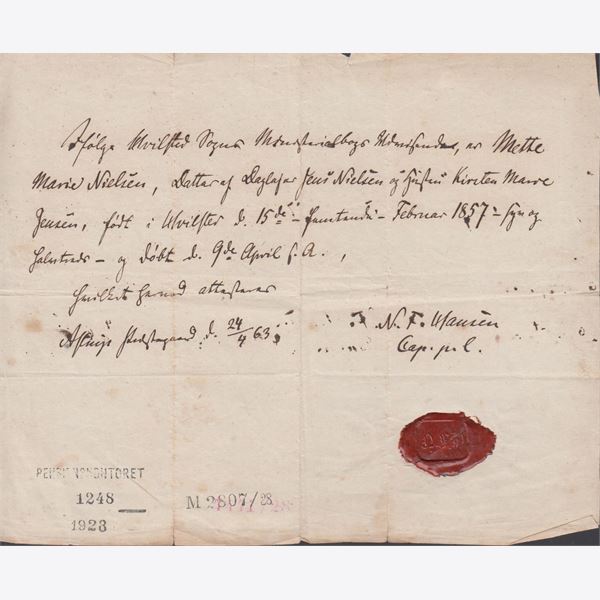 Ifølge Hvilsted Sogns Ministerialbogs Udvisende, er Mette
Marie Nielsen, Datter af Daglejer Jens Nielsen og Hustru Kirsten Marie
Jensen, født i Hvilsted d. 15de - femtende - Februar 1857 - syv og
halvtreds - og døbt d. 9de April s. A.,
hvilket herved attesteres
Præstegaard d. 24/4 63
N. F. Hansen
Cap. p. l.
PENSIONSKONTORET
1248
1928
M 2807/28